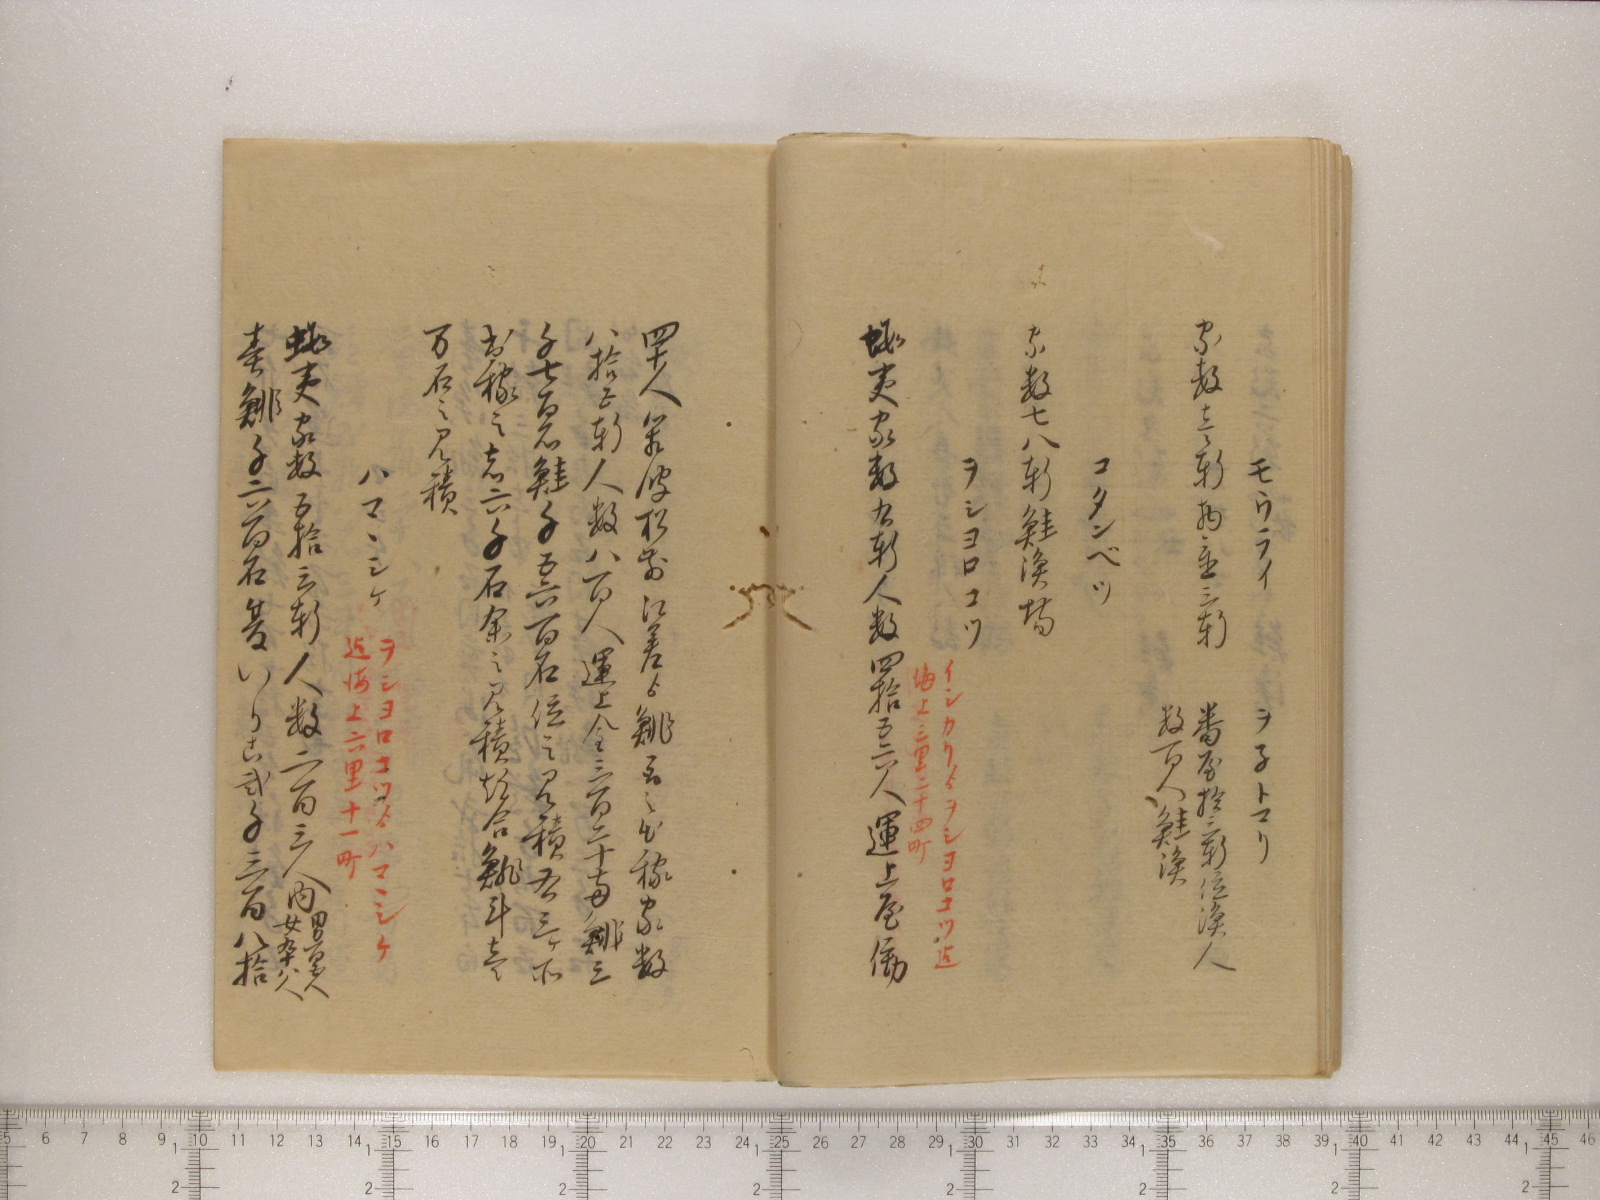 モウライ　ヲネトマリ
家数壱軒拘壱三軒
番屋拾三軒位漁人
数百人鮭漁
コタンベツ
家数七八軒鮭漁場
ヲシヨロコツ
イシカリよヲシヨロコツ迄
海上三里二十四町
蝦夷家数九軒人数四拾五六人運上屋働
四十八人罷渡松前江差よ鯡子之出稼家数
八拾五軒人数八百人運上金三百二十両鯡三
千七百石鮭千五六百石位之見積右三ヶ所
出稼之者六千石余之見積都合鯡斗壱
万石之見積
ハママシケ
ヲシヨロコツよハママシケ
迄海上六里十一町
蝦夷家数五拾三軒人数二百三人内
男百五人
女九十八人
春鯡千六百石夏いりこ弐千三百八拾